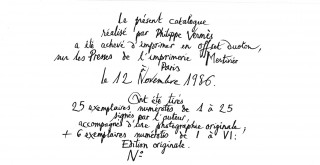 Le présent catalogue
réalisé par Philippe Vermès
a été achevé d'imprimer en offset duoton,
sur les Presses de l'imprimerie Martinée
à Paris
le 12 Novembre 1986.
Ont été tirés
25 exemplaires numérotés de 1 à 25
signés par l'auteur,
accompagnés d'une photographie originale,
+ 6 exemplaires numérotés de I à VI.
Edition originale.
N°